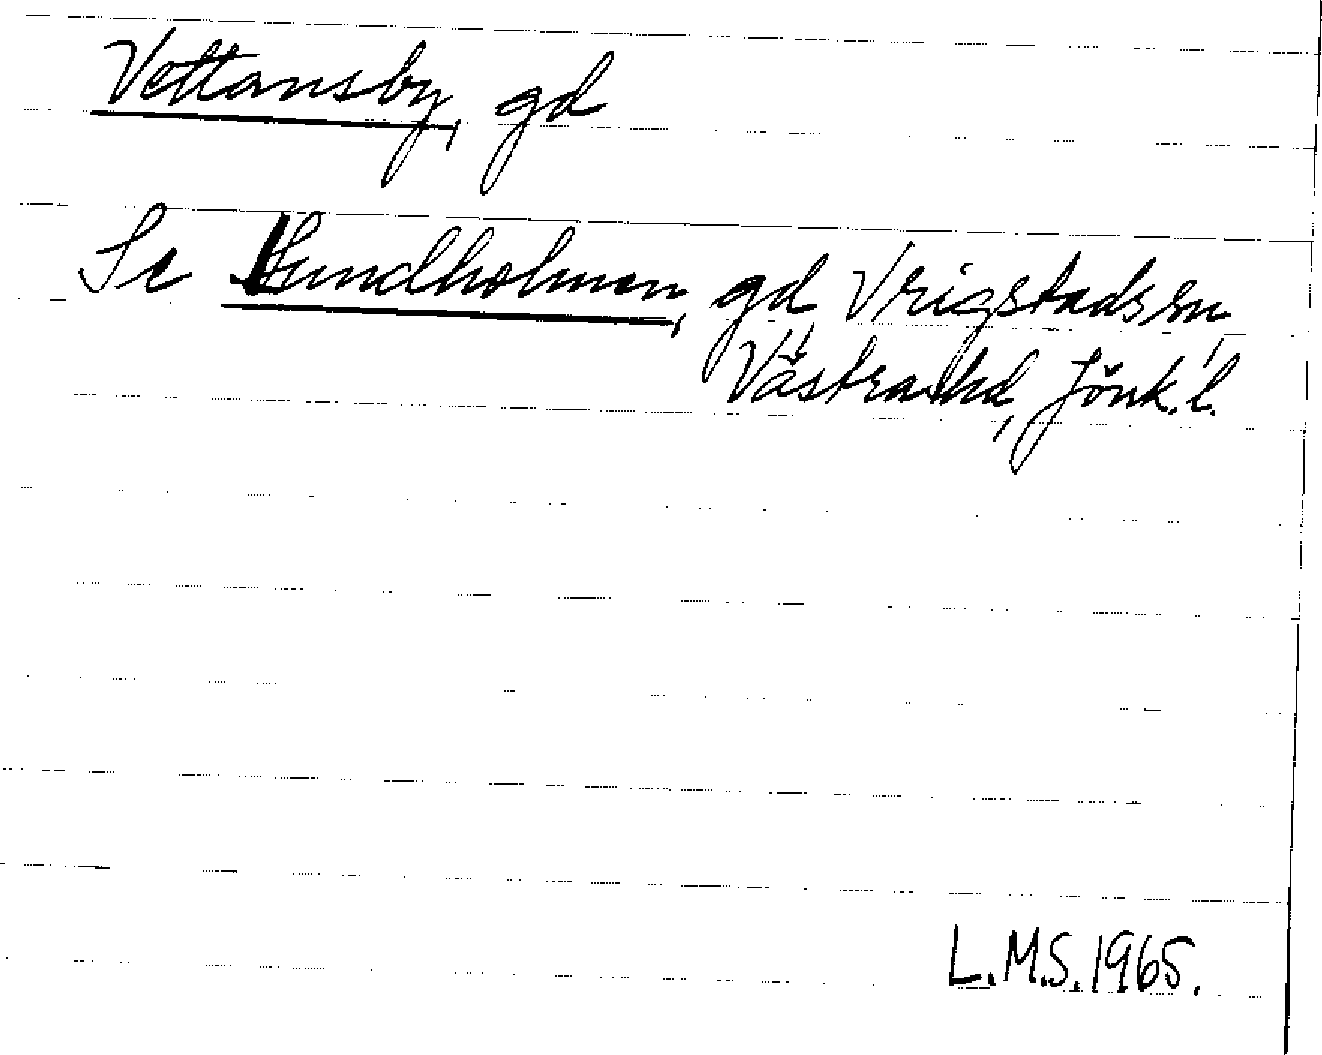 Vettansby, gd
Se Lundholmen, gd Vrigstads sn,
Västra hd, Jönk. l.
L.M.S. 1965.